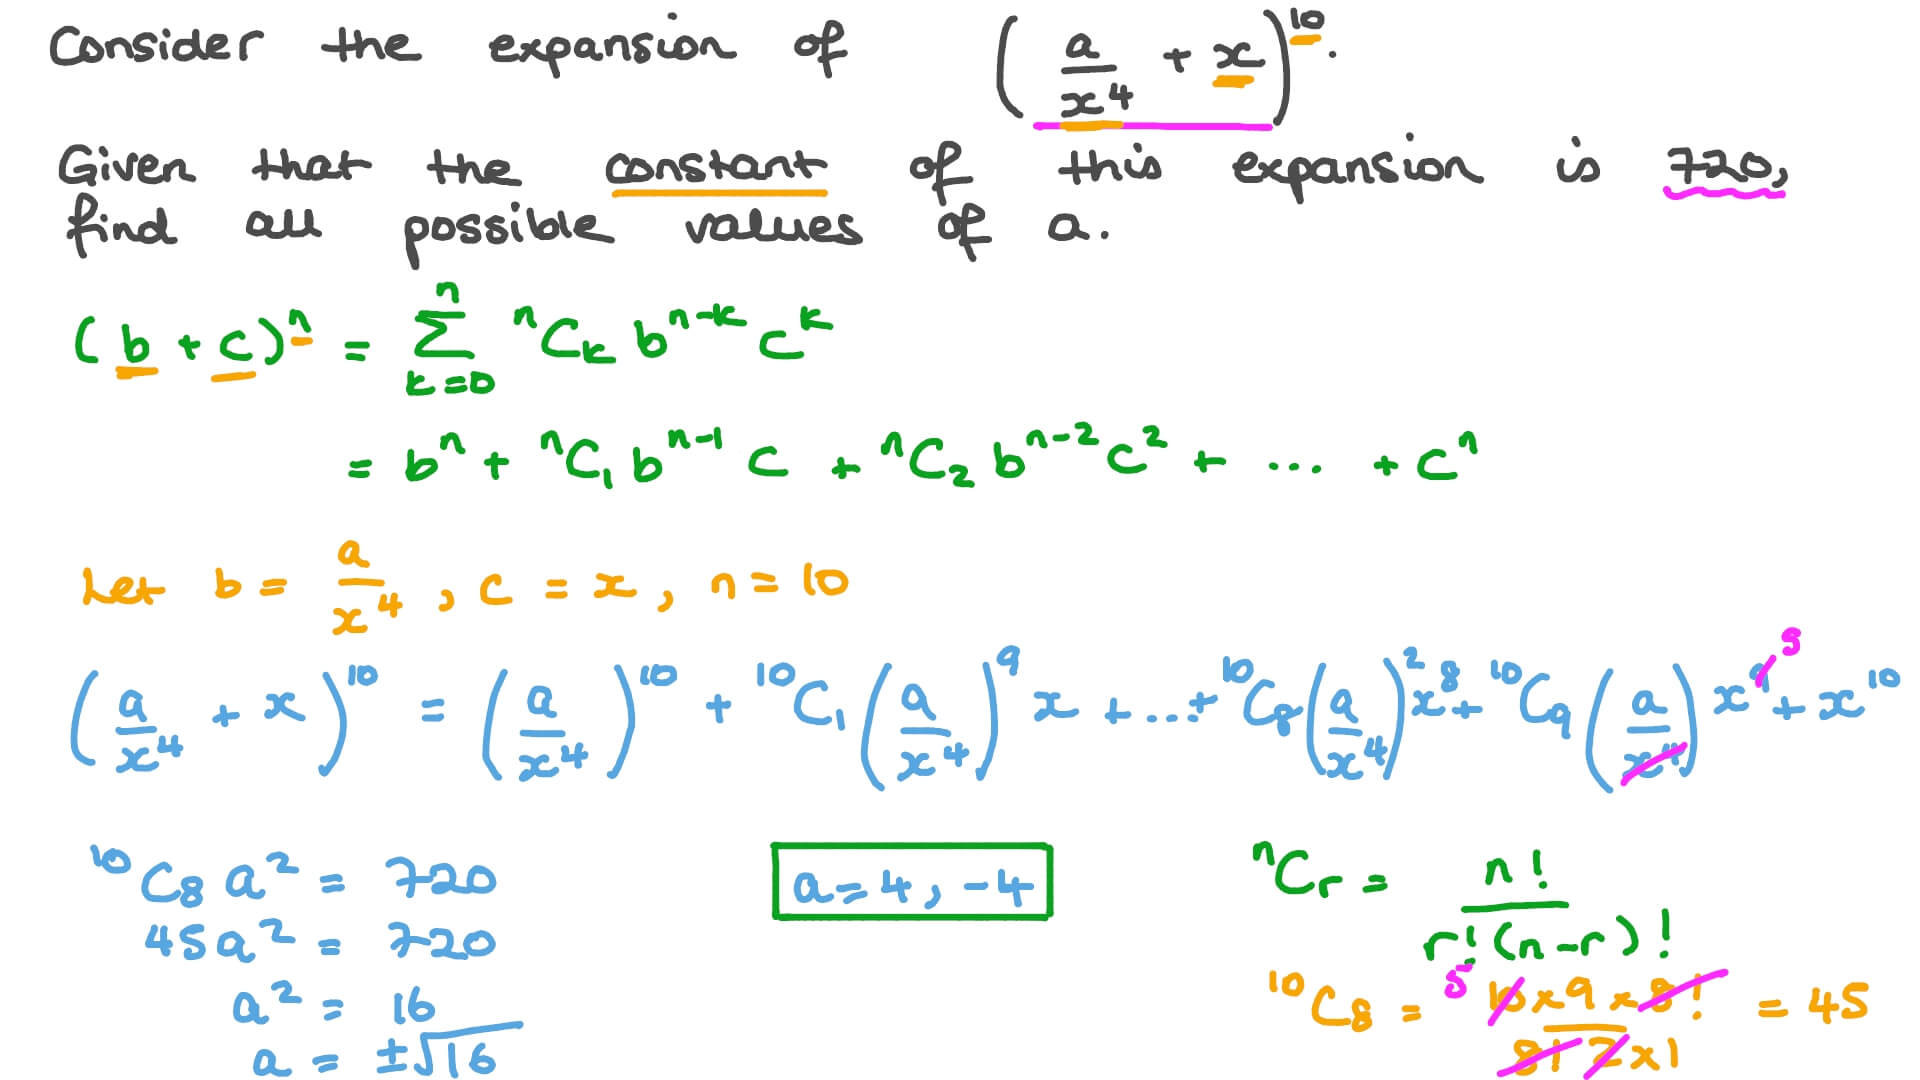 Consider the expansion of (a/x⁴ + x)¹⁰.
Given that the constant of this expansion is 720,
find all possible values of a.
(b + c)ⁿ = Σₖ₌₀ⁿ ⁿCₖ bⁿ⁻ᵏ cᵏ
= bⁿ + ⁿC₁ bⁿ⁻¹ c + ⁿC₂ bⁿ⁻² c² + ... + cⁿ
Let b = a/x⁴, c = x, n = 10
(a/x⁴ + x)¹⁰ = (a/x⁴)¹⁰ + ¹⁰C₁ (a/x⁴)⁹ x + ... + ¹⁰C₈ (a/x⁴)² x⁸ + ¹⁰C₉ (a/x⁴) x⁹ + x¹⁰
5
¹⁰C₈ a² = 720
45a² = 720
a² = 16
a = ±√16
a = 4, -4
ⁿCᵣ = n! / r!(n-r)!
¹⁰C₈ = 5 10 × 9 × 8! / 8! 2 × 1 = 45